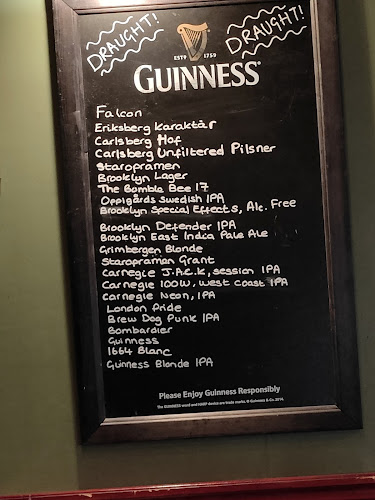 DRAUGHT!
DRAUGHT!
ESTD 1759
GUINNESS
Falcon
Eriksberg Karaktär
Carlsberg Hof
Carlsberg Unfiltered Pilsner
Staropramen
Brooklyn Lager
The Bomble Bee 17
Oppigårds Swedish IPA
Brooklyn Special Effects, Alc. Free
Brooklyn Defender IPA
Brooklyn East India Pale Ale
Grimbergen Blonde
Staropramen Grant
Carnegie J.A.C.K, session IPA
Carnegie 100W, West Coast IPA
Carnegie Neon, IPA
London Pride
Brew Dog Punk IPA
Bombardier
Guinness
1664 Blanc
Guinness Blonde IPA
Please Enjoy Guinness Responsibly
The GUINNESS word and HARP device are trade marks. © Guinness & Co. 2014.